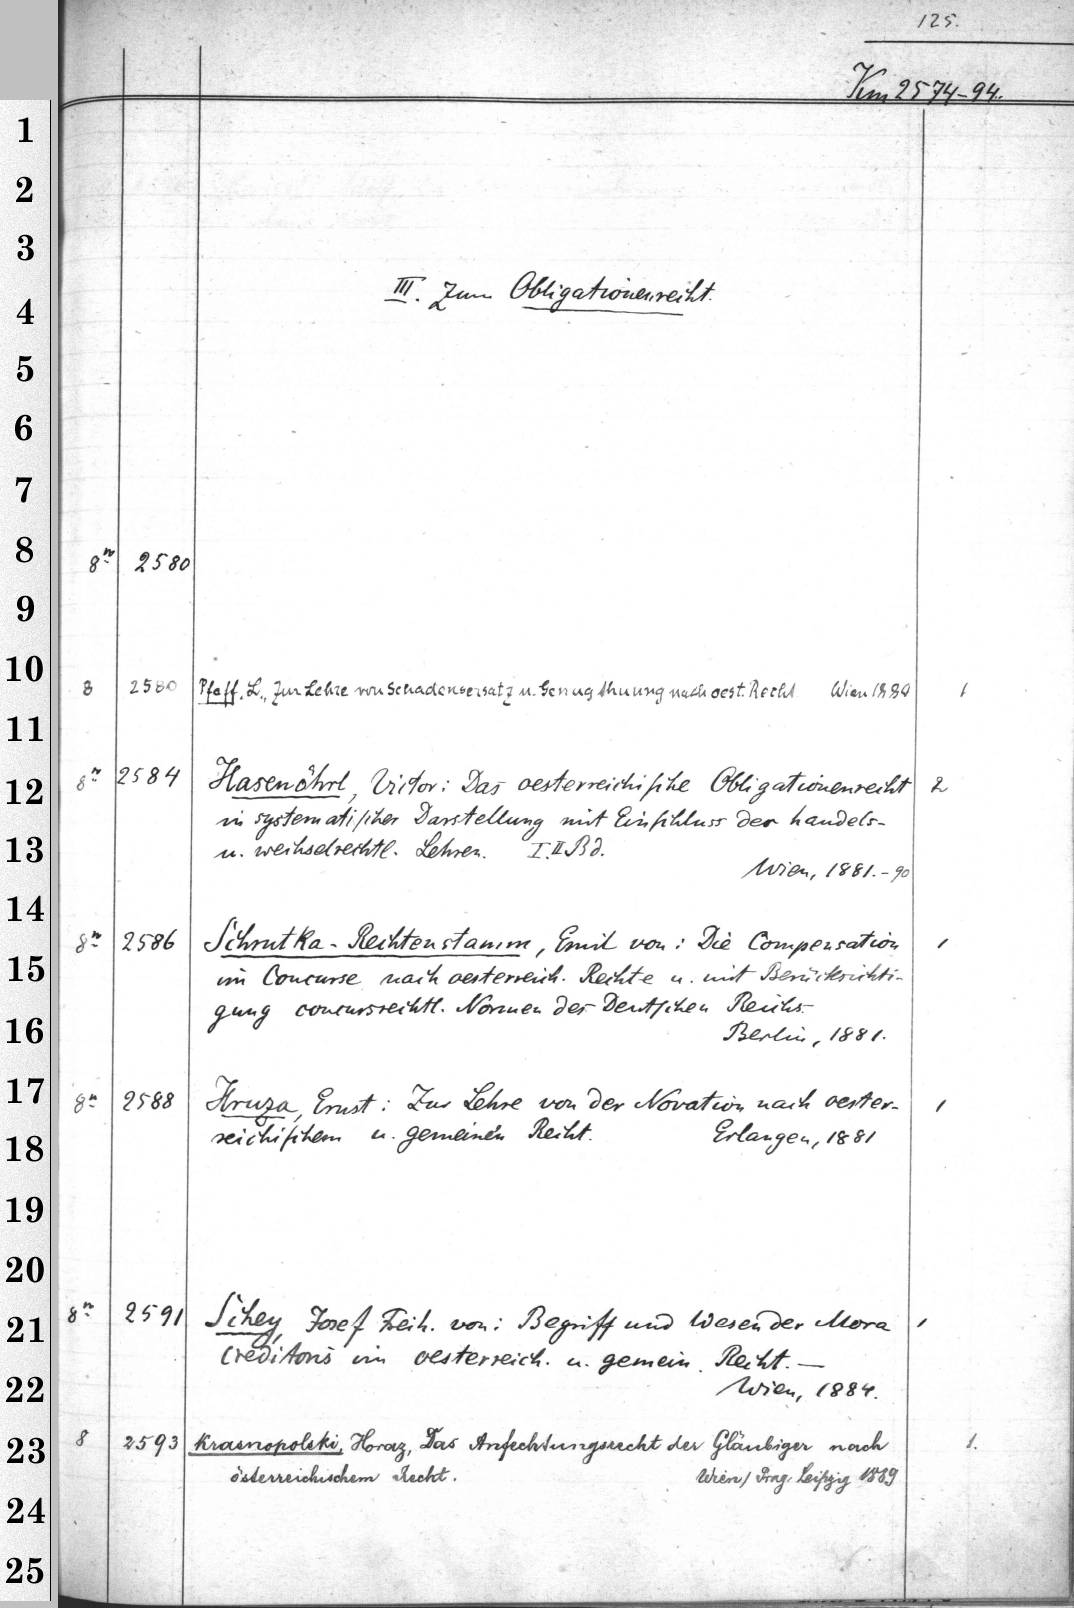 125.
Km 2574-94.
1
2
3
III. Zum Obligationenrecht.
4
5
6
7
8
8º 2580
9
10
8 2580 Pfaff, L., Zur Lehre von Schadensersatz u. Genugthuung nach oest. Recht Wien 1880 1
11
8º 2584 Hasenöhrl, Victor: Das oesterreichische Obligationenrecht 2
12
in systematischer Darstellung mit Einschluss der handels-
13
u. wechselrechtl. Lehren. I. II Bd.
Wien, 1881.-90
14
8º 2586 Schrutka-Rechtenstamm, Emil von: Die Compensation 1
15
im Concurse nach oesterreich. Rechte u. mit Berücksichti-
gung concursrechtl. Normen des Deutschen Reichs.
16
Berlin, 1881.
17
8º 2588 Hruza, Ernst: Zur Lehre von der Novation nach oester- 1
18
reichischem u. gemeinen Recht. Erlangen, 1881
19
20
8º 2591 Schey, Josef Freih. von: Begriff und Wesen der Mora 1
21
Creditoris im oesterreich. u. gemein. Recht. —
22
Wien, 1884.
8 2593 Krasnopolski, Horaz, Das Anfechtungsrecht der Gläubiger nach 1.
23
österreichischem Recht. Wien/ Prag, Leipzig 1889
24
25